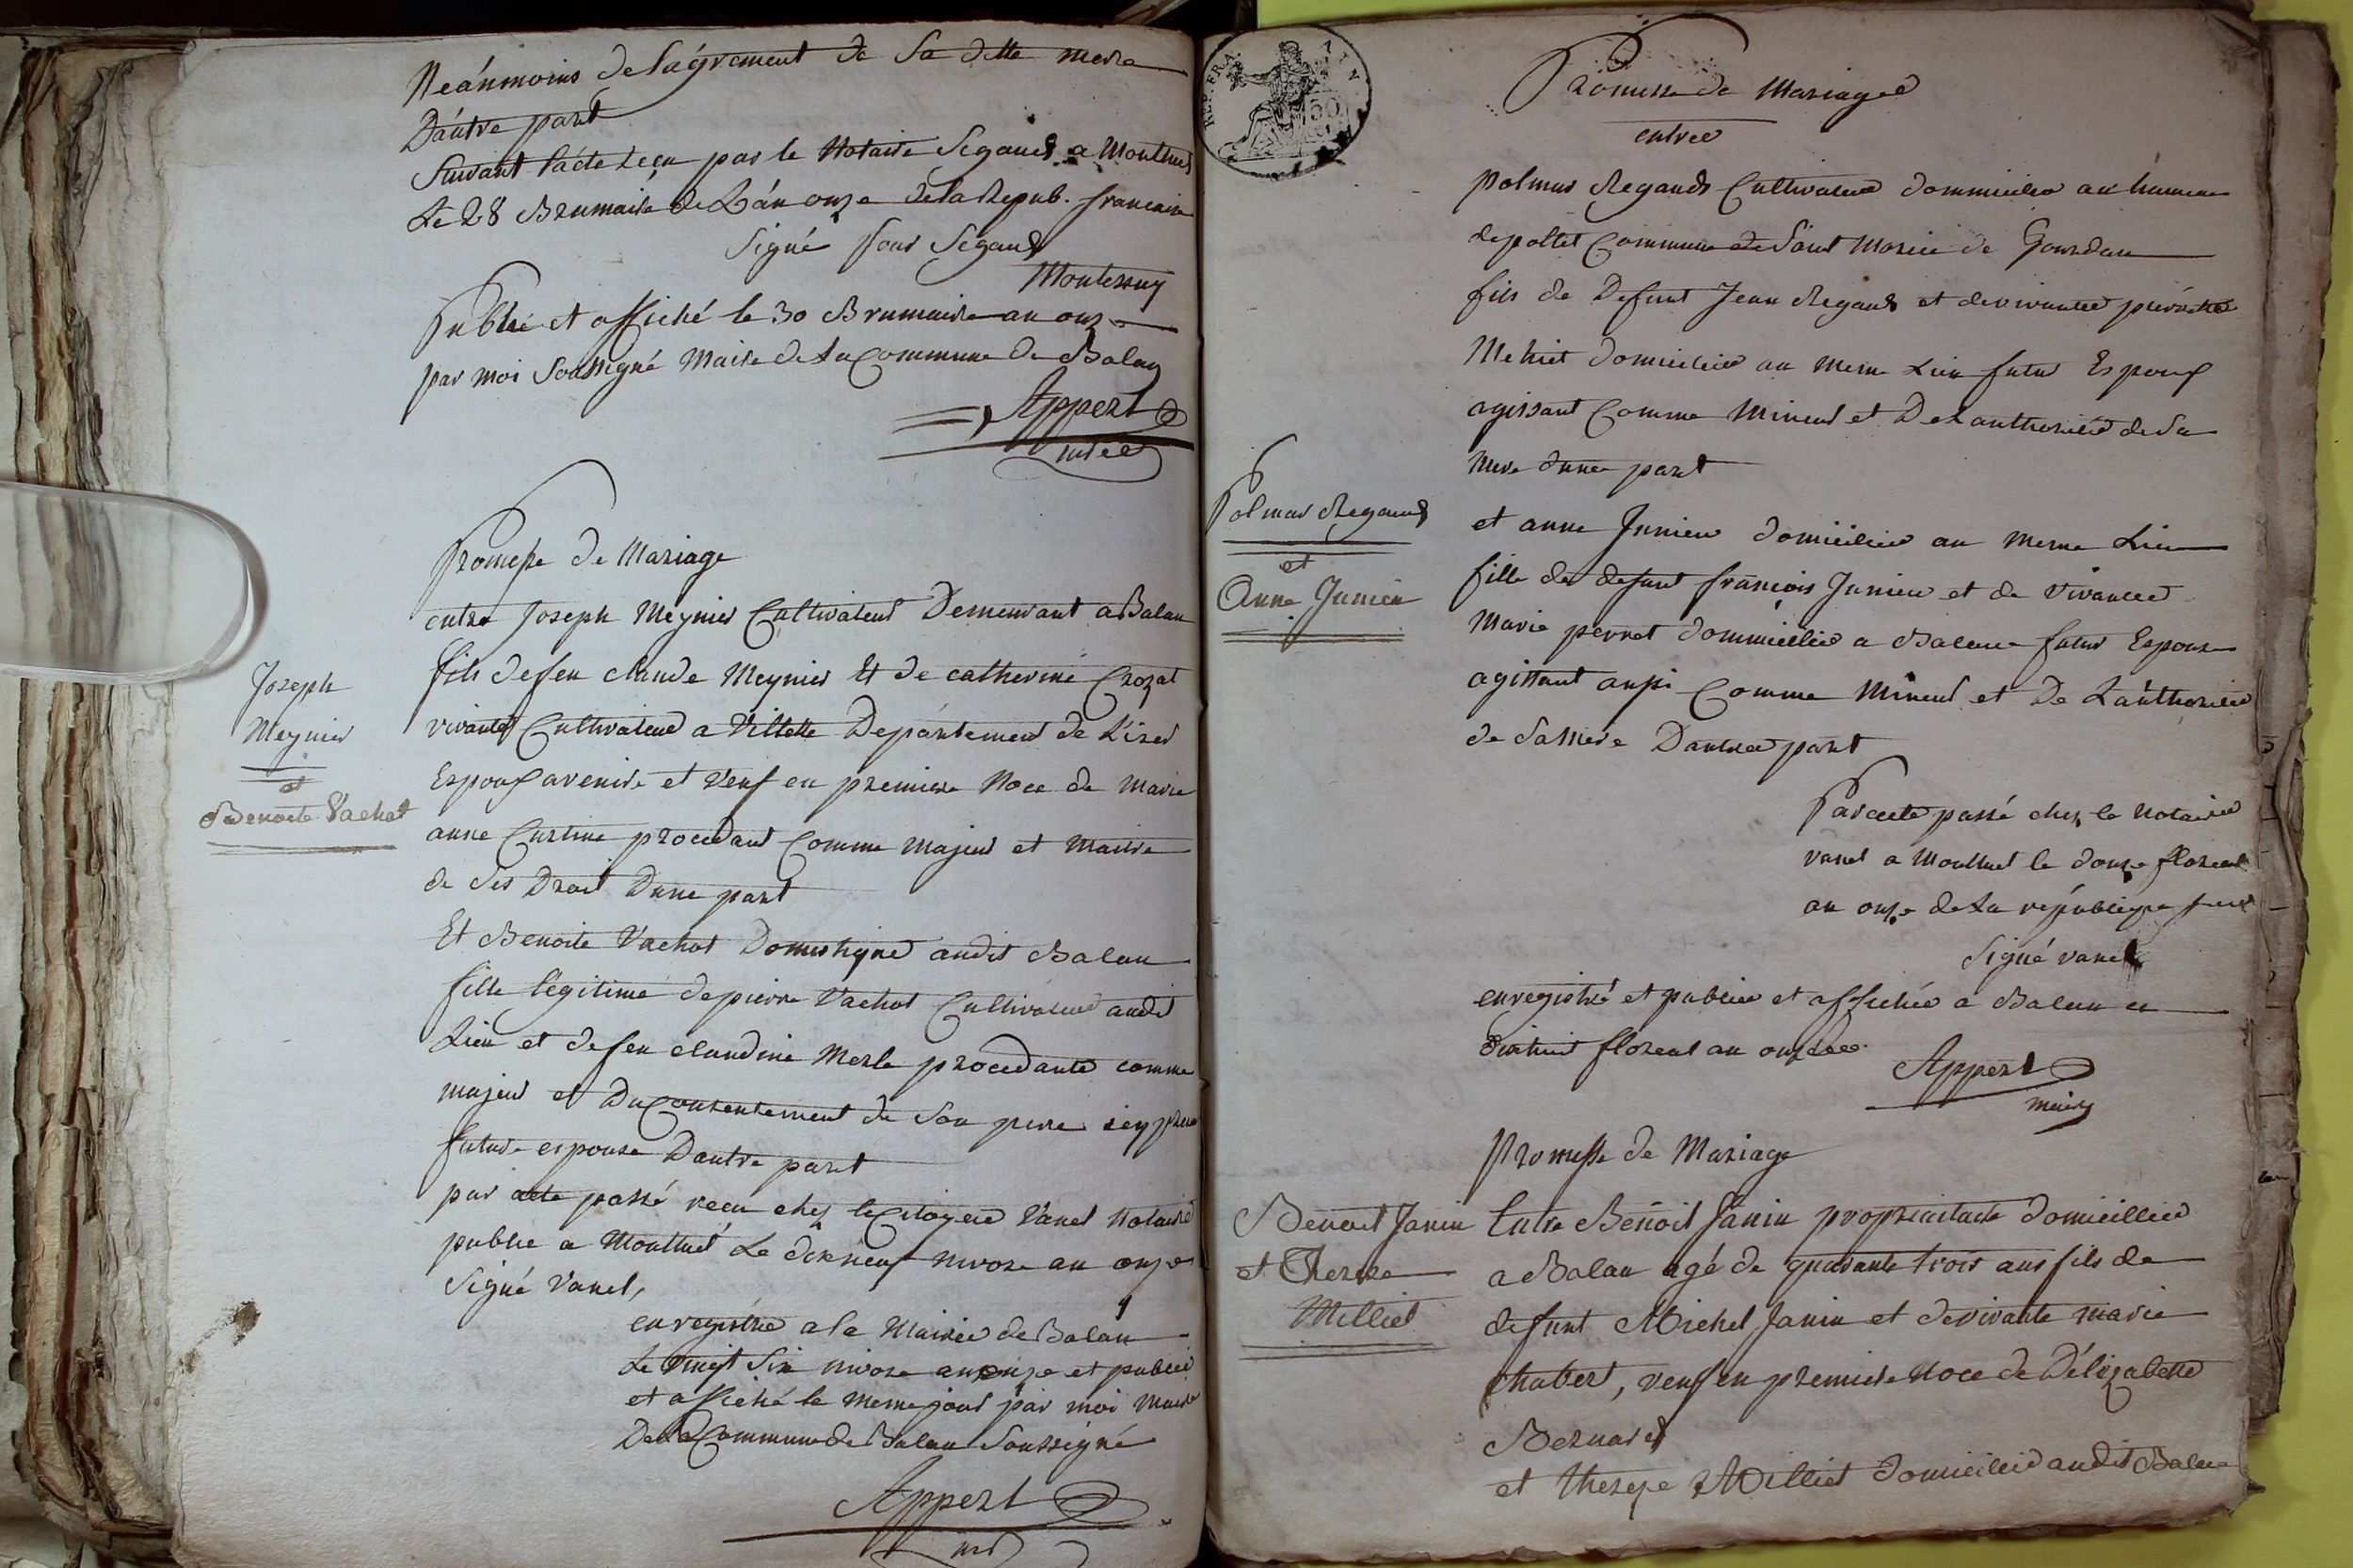 Neánmoins de lágrement de Sa ditte mere
Dáutre part
Suivant lácte reçu par le Notaire Segaud a Montluel
Le 28 Brumaire de Lán onze de la Repub. francaise
Signé pour Segaud
Montessuy
Publié et affiché le 30 Brumaire an onze
par moi Soussigné Maire de la Commune de Balan
Appert
Promesse de Mariage
entre Joseph Meynier Cultivateur Demeurant a Balan
fils de feu claude Meynier Et de catherine Crozat
vivante Cultivateur a Villette Département de L'izer
Espoux avenire et Veuf en premiere Noce de Marie
anne Curtine procedant Comme Majeur et Maitre
de ses Droit Dune part
Et Benoite Vachot Domestique audit Balan
fille légitime de pierre Vachot Cultivateur audit
Lieu et de feu claudine Merle procedante comme
majeur et Du Consentement de Son pere
future espouse Dautre part
par acte passé recu chez le Citoyen Vanel Notaire
public a Montluel Le dixneuf nivose an onze
Signé Vanel,
enregistré a la Mairie de Balan
Le Vingt Six nivose an onze et publié
et affiché le meme jour par moi Maire
De La Commune de Balan Soussigné
Appert
Joseph
Meynier
et
Benoite Vachot
Promesse de Mariage
entree
polmas Regaud Cultivateur dommicilier au hameau
de pollet Commune de Saint Morice de Gourdan
fils de Defunt Jean Regaud et de vivante pierrette
domicilier au meme Lieu futur Espoux
agissant Comme Mineur et De Lauthorité de Sa
Mere dune part
Polmas Regaud
et
Anne Junieu
et anne Junieu domicilier au meme Lieu
fille de defunt francois Junieu et de Vivante
Marie perret dommicilier a Balan futur Espouse
agissant aussi Comme Mineur et De Láuthorité
de Sa Mere Dautre part
Par acte passé chez le Notaire
vanel a Montluel le douze floreal
an onze de La république
Signé vanel
enregistré et publier et affichée a Balan ce
dixhuit floreal an onze
Appert
maire
Promesse de Mariage
Benoit Janin
et Therese
Milliet
Entre Benoit Janin propriaitaire domicillier
a Balan agé de quarante trois ans fils de
defunt Michel Janin et de vivante marie
chabert, veuf en premiere Noce de Délizabette
Bernard
et therese Milliet domicilier audit Balan